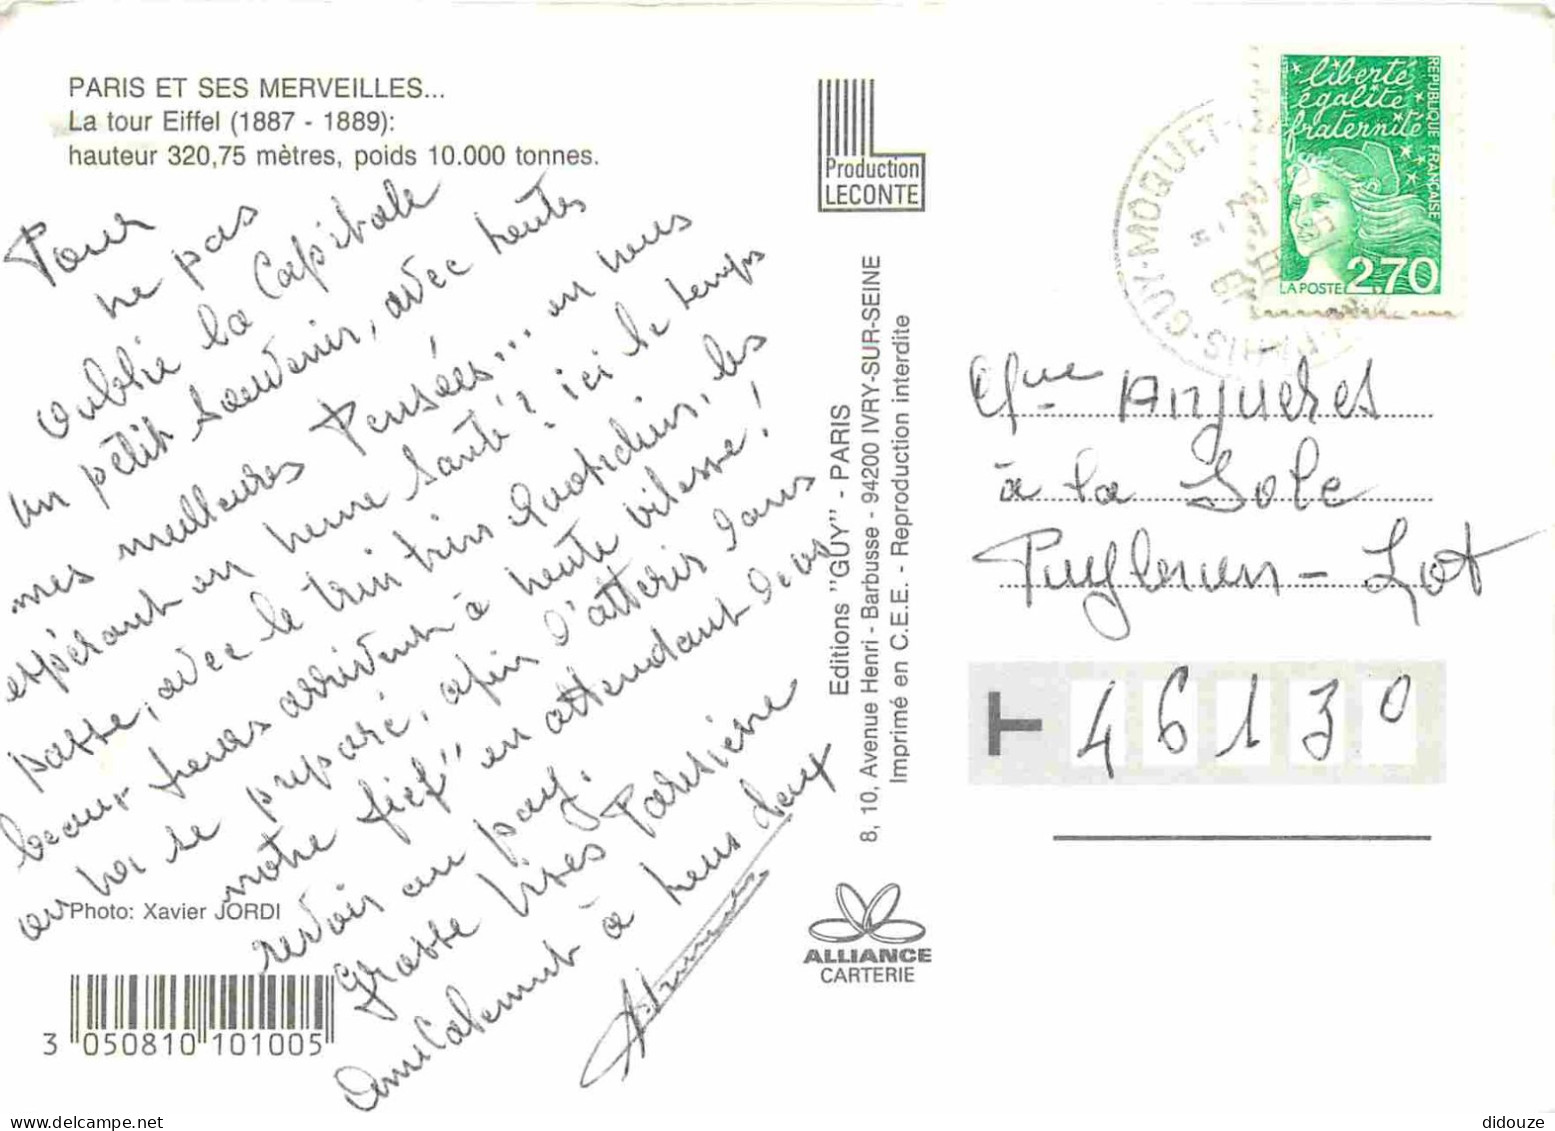 PARIS ET SES MERVEILLES...
La tour Eiffel (1887 - 1889):
hauteur 320,75 mètres, poids 10.000 tonnes.
Pour
ne pas
oublié la Capitale
un pétit souvenir, avec toutes
mes meilleures Pensées... on vous
espérant en bonne santé? ici le temps
passe, avec le train train quotidien, les
beaux jours arrivent à haute vitesse!
on va se préparé, afin d'atteris dans
notre fief" en attendant de vous
revoir au pays.
Grosse bises Parisiène
Amicalement à vous deux
Photo: Xavier JORDI
3 050810 101005
Production
LECONTE
Editions "GUY" - PARIS
8, 10, Avenue Henri - Barbusse - 94200 IVRY-SUR-SEINE
Imprimé en C.E.E. - Reproduction interdite
ALLIANCE
CARTERIE
liberté
égalité
fraternité
REPUBLIQUE FRANÇAISE
2,70
LA POSTE
PARIS-GUY-MOQUET
à la
Puylaurens - Lot
46130
didouze